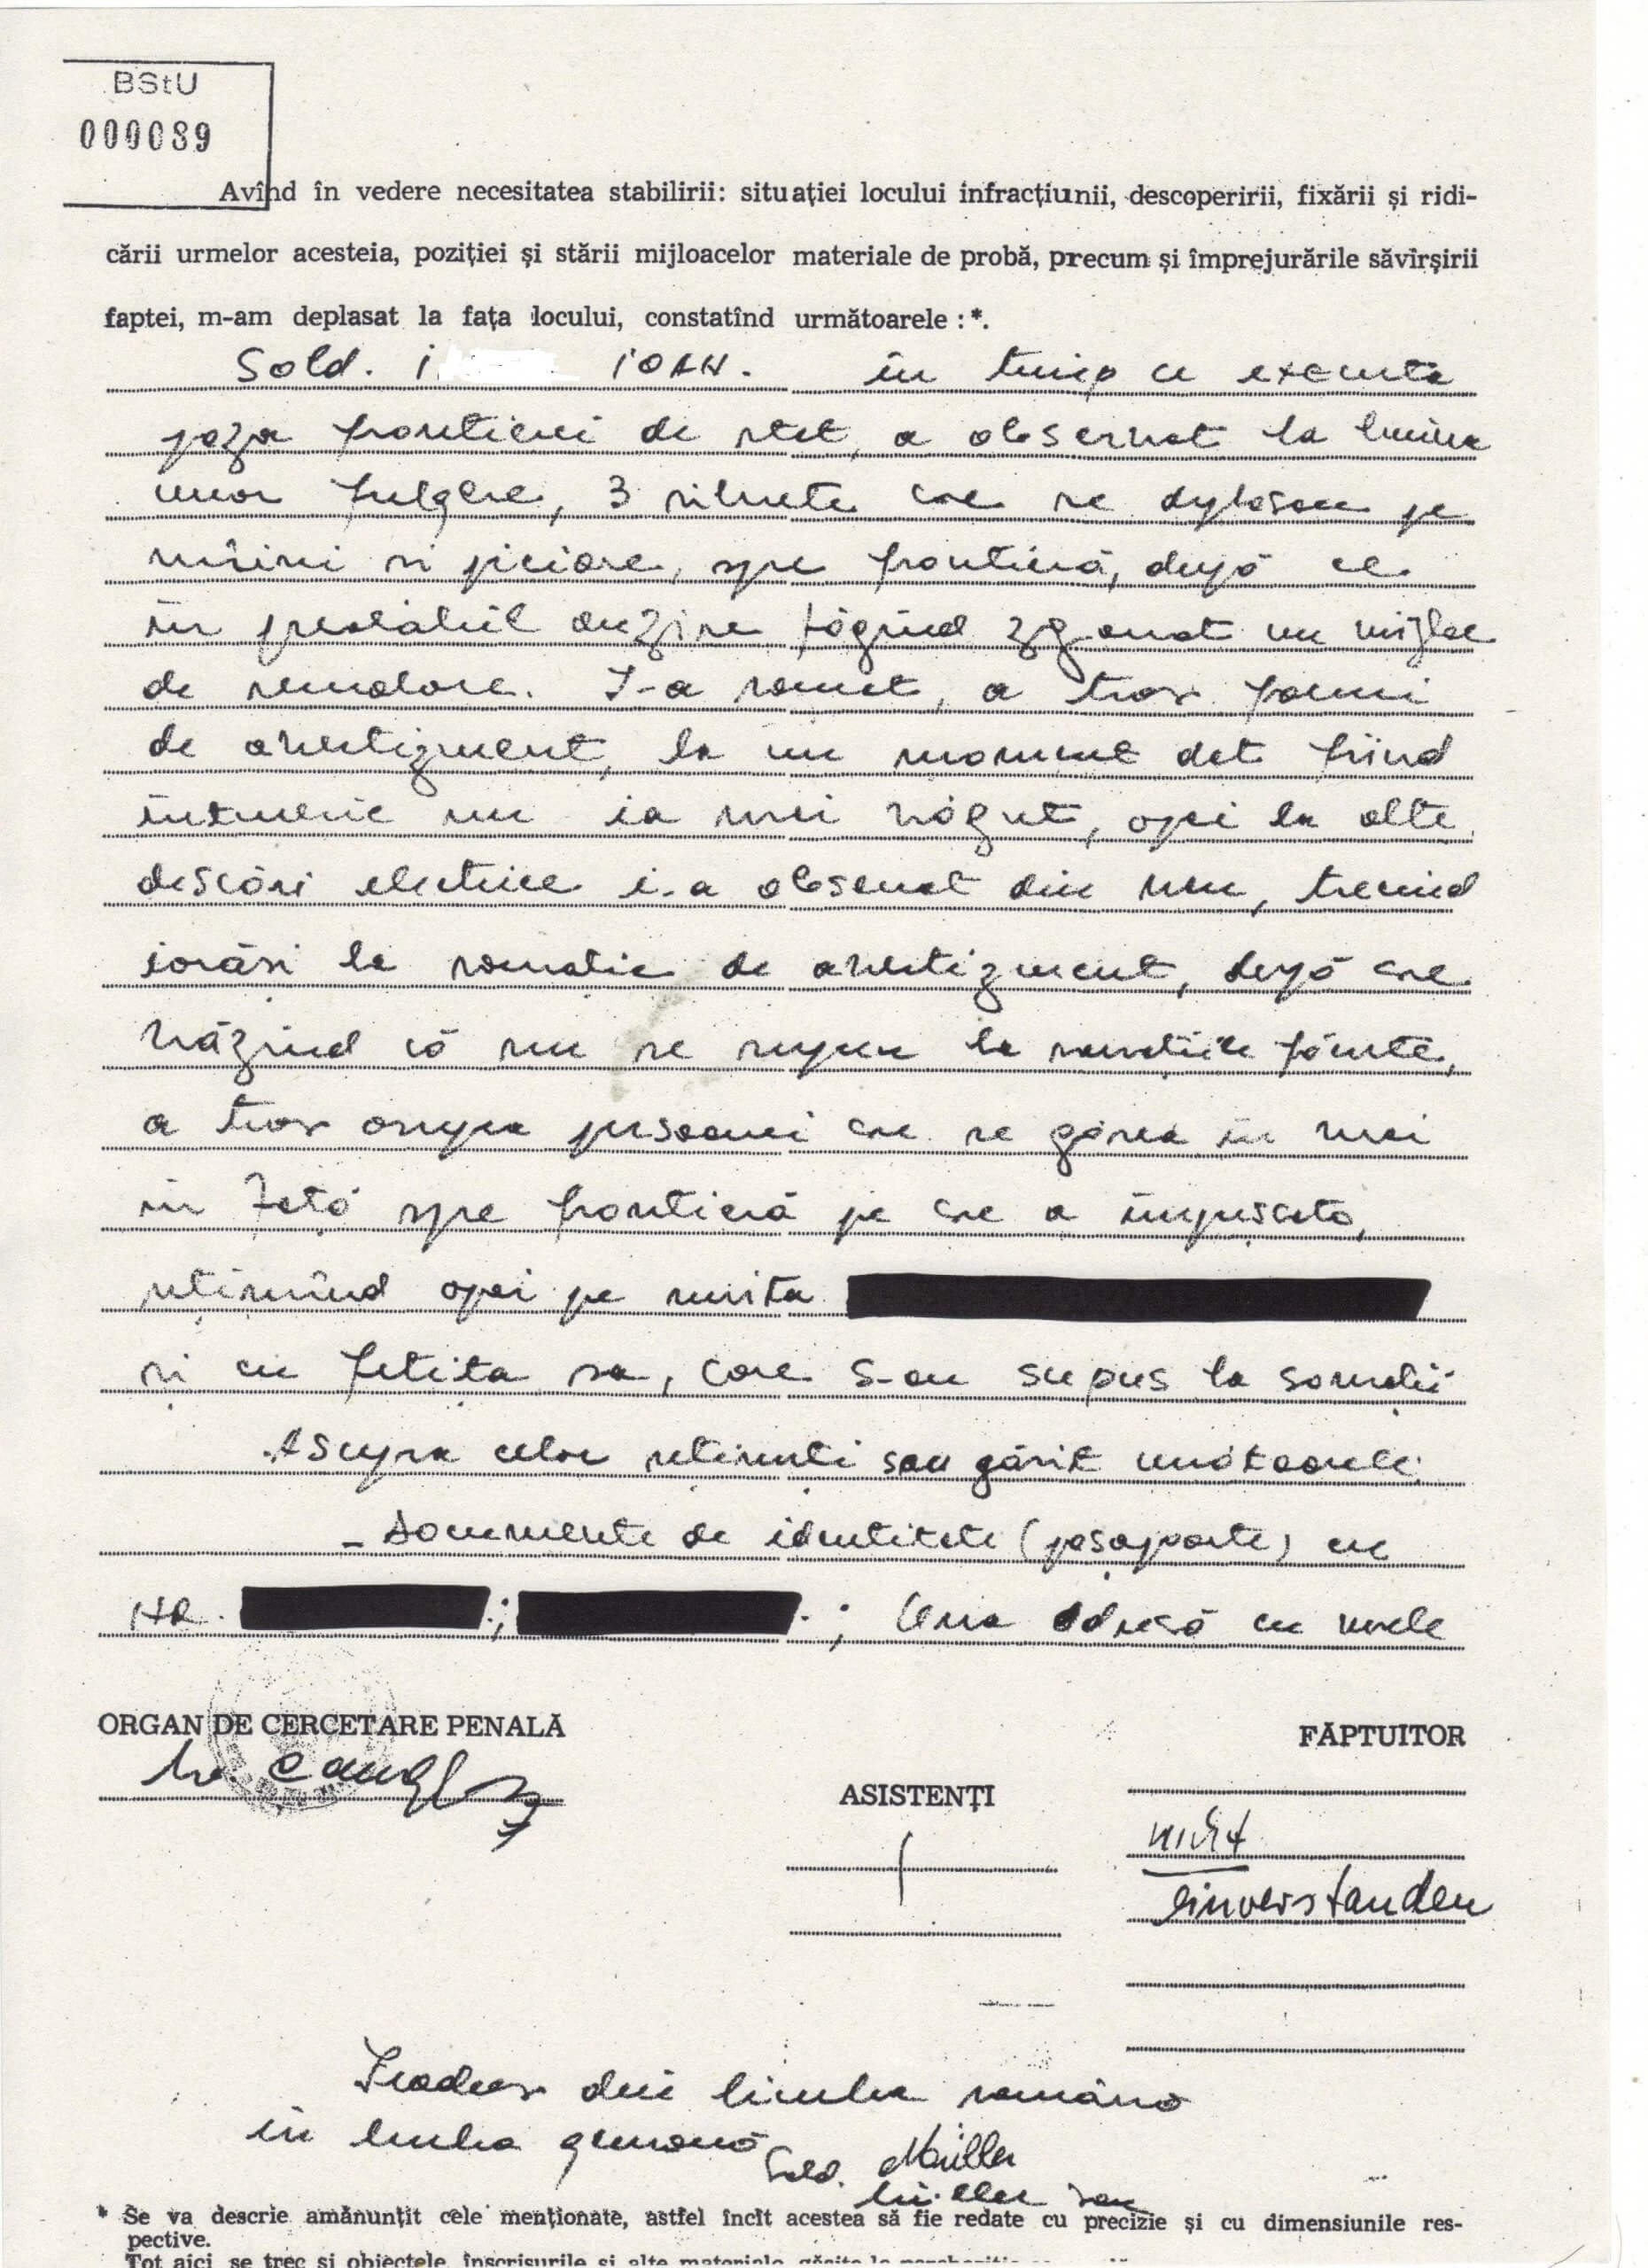 BStU
000089
Avînd în vedere necesitatea stabilirii: situației locului infracțiunii, descoperirii, fixării și ridi-
cării urmelor acesteia, poziției și stării mijloacelor materiale de probă, precum și împrejurările săvîrșirii
faptei, m-am deplasat la fața locului, constatînd următoarele :*.
Sold. I IOAN. în timp ce executa
paza frontierei de stat, a observat la lumina
unor fulgere, 3 siluete care se deplasau pe
mîini si picioare, spre frontieră, după ce
în prealabil auzise făgînd zgomot un mijloc
de semnalizare. I-a somat, a tras focuri
de avertizment, la un moment dat fiind
întuneric nu ia mai văzut, apoi la alte
descări electrice i-a observat din nou, trecînd
iarăsi la somatia de avertizment, după care
văzînd că nu se supun la somatiile făcute,
a tras asupra persoanei care se gărea în mai
în fată spre frontieră pe care a împuscato,
retinînd apoi pe numita
si cu fetita sa, care s-au supus la somatii
Asupra celor retinuti sau gărit următoarele:
- Documente de identitate (pasapoarte) cu
NR. ; . ; Una adresă cu unele
ORGAN DE CERCETARE PENALĂ
FĂPTUITOR
ASISTENȚI
nicht
einverstanden
Tradus din limba română
în limba germană
Sold. Müller
* Se va descrie amănunțit cele menționate, astfel încît acestea să fie redate cu precizie și cu dimensiunile res-
pective.
Tot aici se trec și obiectele, înscrisurile și alte materiale găsite la percheziție